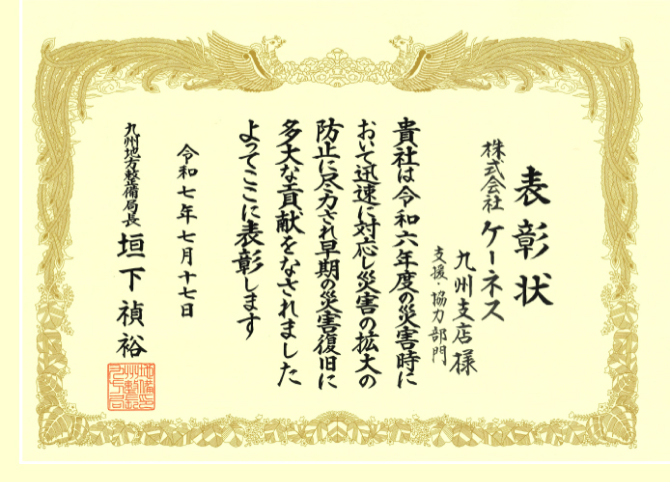 表彰状
株式会社 ケーネス
九州支店 様
支援・協力部門
貴社は令和六年度の災害時に
おいて迅速に対応し災害の拡大の
防止に尽力され早期の災害復旧に
多大な貢献をなされました
よってここに表彰します
令和七年七月十七日
九州地方整備局長 垣下禎裕